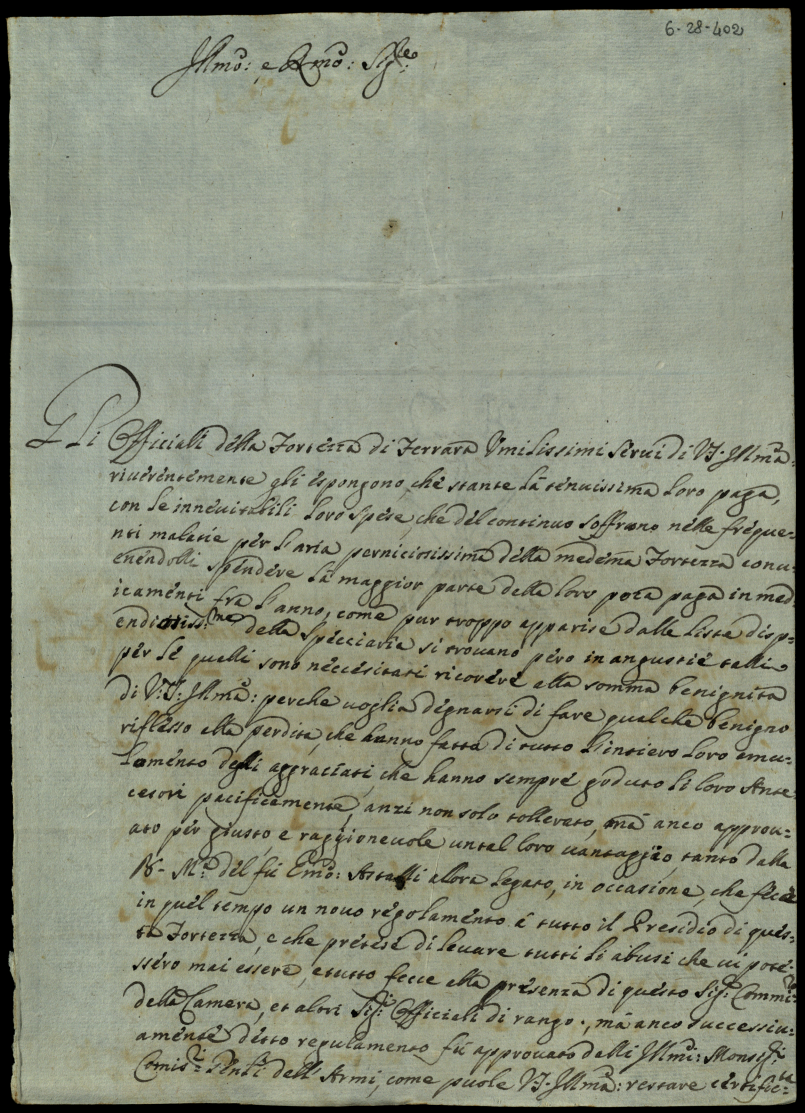 6-28-402
Illmo: e Rmo: Sigre:
Gli Officiali della Fortezza di Ferrara Umilissimi Servi di V.S. Illma:
riverentemente gli espongono, che stante la tenuissima loro paga,
con le innevitabili loro spese, che del continuo soffrono nelle freque-
nti malatie per l'aria perniciosissima della medema Fortezza conv-
enendolli spendere la maggior parte della loro poca paga in med-
icamenti fra l'anno, come pur troppo apparise dalle liste disp-
endiosissme della speciaria si trovano però in angustie talli
per le quelli sono neccesitati ricorere alla somma benignità
di V.S: Illma: perche voglia degnarsi di fare qualche benigno
riflesso alla perdita, che hanno fatta di tutto l'intiero loro emu-
lamento degli aggraciati, che hanno sempre goduto li loro Ante-
cesori pacificamente, anzi non solo tollerato, mà anco approv-
ato per giusto, e raggionevole un tal loro vantaggio, tanto dalla
B- Ma: del fù Emo: Astalli alora Legato, in occasione, che fece
in quel tempo un novo regolamento à tutto il Presidio di ques-
ta Fortezza, e che pretese di levare tutti li abusi che vi pote-
ssero mai essere, e tutto fecce alla presenza di questo Sigr: Commio
della Camera, et altri Sigri: Officiali di rango, mà anco successiv-
amente ditto regulamento fù approvato dalli Illmi: Monsigri:
Comisri: Genli dell'Armi, come puole V.S. Illma: restare certificta